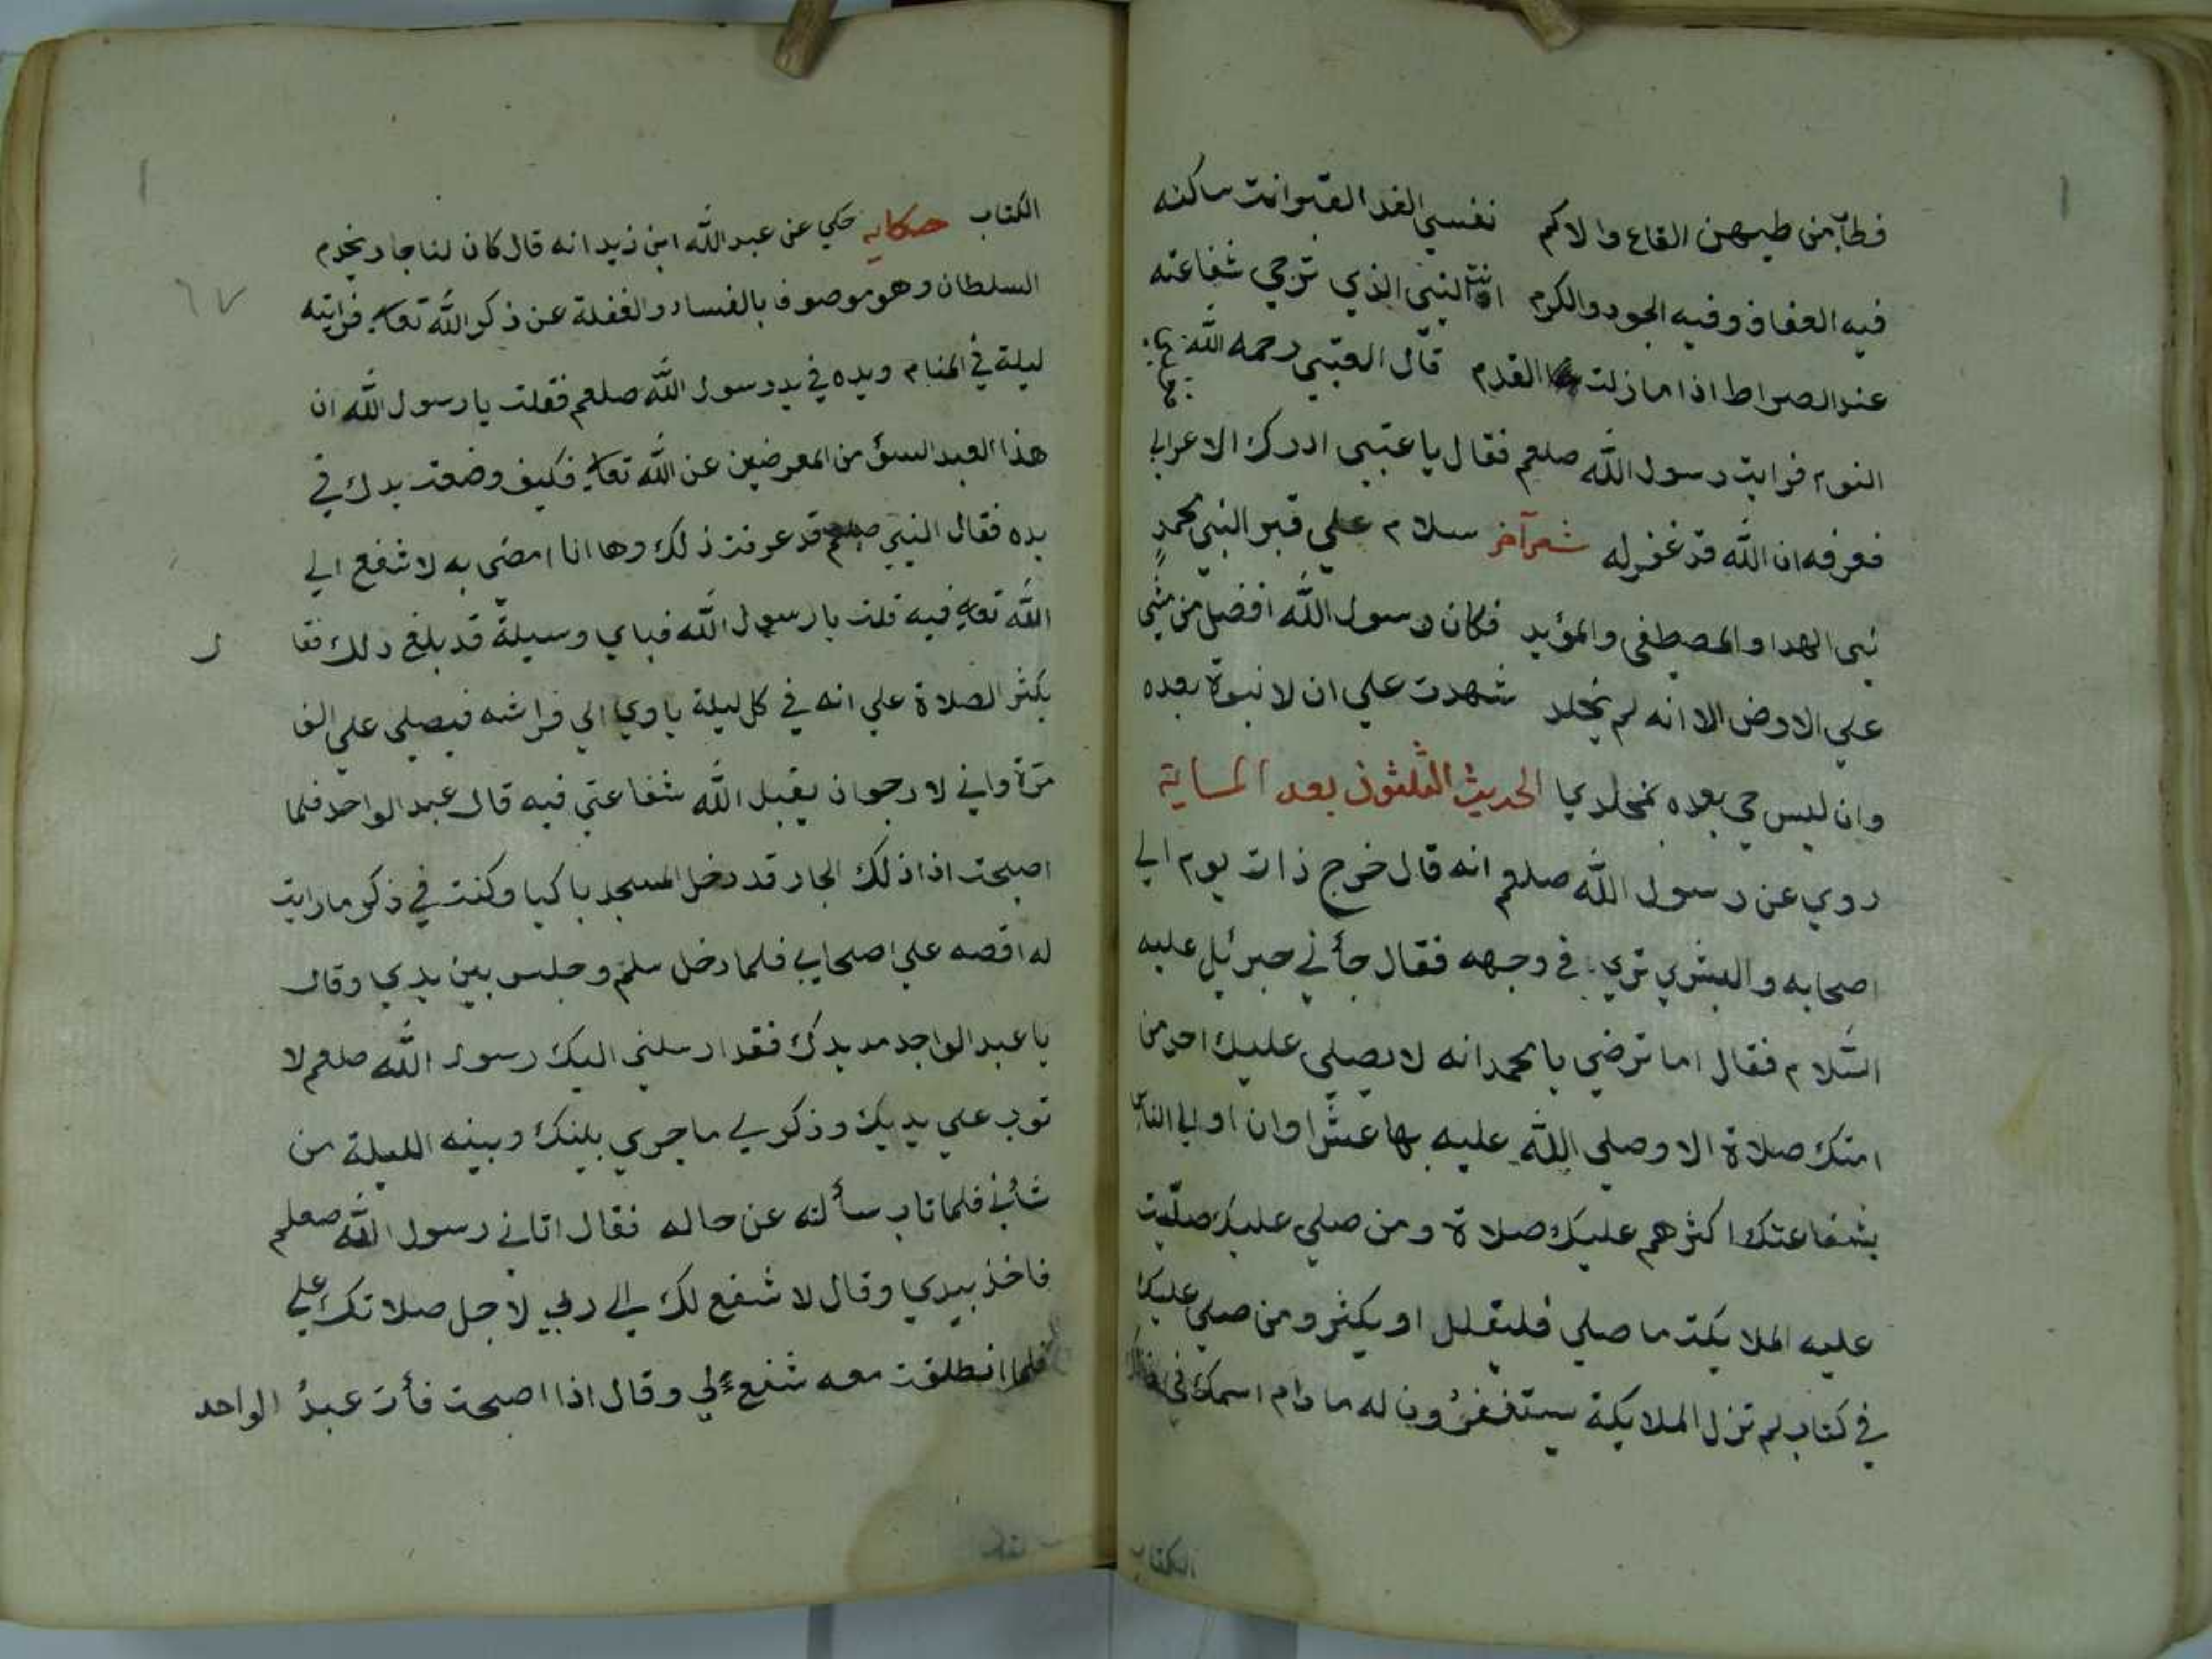 فطاب من طيبهن القاع والاكم نفسي الفدا لقبر انت ساكنه
فيه العفاف وفيه الجود والكرم انت النبي الذي ترجي شفاعته
عند الصراط اذا ما زلت القدم قال العتبي رحمه الله
النوم فرايت رسول الله صلعم فقال يا عتبي ادرك الاعرابي
فعرفه ان الله قد غفر له شعر آخر سلام علي قبر النبي محمد
نبي الهدا والمصطفي والمؤيد فكان رسول الله افضل من مشي
علي الارض الا انه لم يخلد شهدت علي ان لا نبوة بعده
وان ليس حي بعده بمخلدي الحديث الثلثون بعد المـاية
روي عن رسول الله صلعم انه قال خرج ذات يوم الي
اصحابه والبشري تري في وجهه فقال جأني جبرئيل عليه
السّلام فقال اما ترضي يا محمد انه لا يصلي عليك احد من
امتك صلاة الا وصلي الله عليه بها عشرا وان اولي الناس
بشفاعتك اكثرهم عليك صلاة ومن صلي عليك صلّيت
عليه الملايكة ما صلي فليقلل او يكثر ومن صلي عليك
في كتاب لم تزل الملايكة يستغفرون له ما دام اسمك في ذلك
الكتاب
الكتاب حكاية حكي عن عبد الله ابن زيد انه قال كان لنا جار يخدم
السلطان وهو موصوف بالفساد والغفلة عن ذكر الله تعا فرايته
ليلة في المنام ويده في يد رسول الله صلعم فقلت يا رسول الله ان
هذا العبد السؤ من المعرضين عن الله تعا فكيف وضعت يدك في
يده فقال النبي صلعم قد عرفت ذلك وها انا امضي به لاشفع الي
الله تعا فيه قلت يا رسول الله فباي وسيلة قد بلغ ذلك فقا ل
بكثر الصلاة علي انه في كل ليلة ياوي الي فراشه فيصلي علي الف
مرّة واني لارجو ان يقبل الله شفاعتي فيه قال عبد الواحد فلما
اصبحت اذا ذلك الجار قد دخل المسجد باكيا وكنت في ذكر ما رايت
له اقصه علي اصحابي فلما دخل سلم وجلس بين يدي وقال
يا عبد الواحد مد يدك فقد ارسلني اليك رسول الله صلعم لا
توب علي يديك وذكر لي ما جري بينك وبينه الليلة من
شأني فلما تاب سألته عن حاله فقال اتاني رسول الله صعلم
فاخذ بيدي وقال لاشفع لك الي ربي لاجل صلاتك علي
فلما انطلقت معه شفع لي وقال اذا اصبحت فأت عبد الواحد